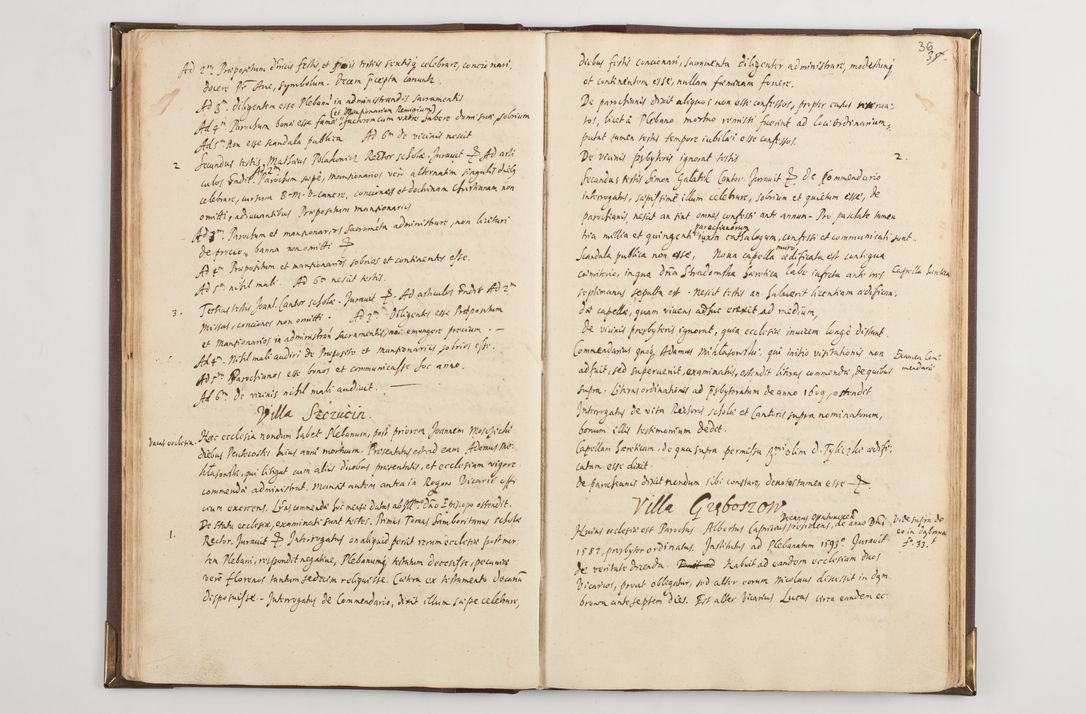 Ad 2m Praepositum diebus festis, et feriis festis saepe celebrare, concionari,
docere Pr Ave, Symbolum. Decem praecepta canunt.
Ad 3m. diligentem esse Plebanum in administrandis sacramentis
Ad 4m Parochum bonae esse famae (et Mansionarium Remigium) sobrium
Ad 5m Non esse scandala publica Ad 6m de vicinis nescit
2. Secundus testis, Mathaeus Polakowic Rector scholae. Juravit. Ad arti
culos respondit. Ad 2m Parochum saepe, mansionarios vero alternatim singulis diebus
celebrare, cursum B. M. V. canere, conciones et doctrinam Christianam non
omitti, adiuvantibus Praepositum mansionariis
Ad 3m Parochum et mansionarios Sacramenta administrare, non licitari
de precio, banna non omitti
Ad 4m Praepositum et mansionarios sobrios et continentes esse.
Ad 5m nihil mali. Ad 6m nescit testis.
3. Tertius testis Joan. Cantor scholae. Juravit. Ad articulos respondit Ad 2m
Missas, conciones non omitti. Ad 3m Diligentes esse Praepositum
et Mansionarios in administran. sacramentis, precium.
Ad 4m. Nihil mali audivi de Praeposito et mansionariis sobrios esse.
Ad 5m Parochianos esse bonos et communicasse hoc anno.
Ad 6m De vicinis nihil mali audivit.
Villa Szczucin.
Vacat ecclesia. Haec ecclesia nondum habet Plebanum, post priorem Joannem
diebus Pentecostes huius anni mortuum. Praesentatus est ad eam Adamus Mi
klaszowski, qui litigat cum aliis duobus praesentatis, et ecclesiam vigore
commendae administrat. Mansit autem antea in Rogow Vicarii offi
cium exercens. Lras commendae sibi mense datas ab Illmo Dno Episcopo ostendit.
De statu ecclesiae, examinati sunt testes. Primus Tomas Samboritanus scholae
1. Rector. Juravit Interrogatus an aliquid perierit rerum ecclesiae post mor
tem Plebani, respondit negative, Plebanum testatum decessisse, pecunias
vero florenos tantum sedecim reliquisse. Caeterum ex testamento Decanum
disposuisse. Interrogatus de Commendario, dixit illum saepe celebrare,
36
37
diebus festis concionari, sacramenta diligenter administrare, modestumque
et continentem esse, nullam faeminam fovere.
De parochianis dixit aliquos non esse confessos, propter casus reserva-
tos, licet a Plebano mortuo remissi fuerint ad loci ordinarium,
putat tamen testis tempore iubilaei esse confessos.
De vicinis presbyteris ignorat testis
2.
Secundus testis Simon Galatek Cantor. Juravit. De Commendario
interrogatus, saepissime illum celebrare, sobrium et quietum esse, de
parochianis, nescit an sint omnes confessi ante annum. Pro paschate tamen
tria millia et quingenti parochianorum iuxta cathalogum, confessi et communicati sunt.
Scandala publica non esse, Nova capella muro aedificata est contigua
coemiterio, in qua Dna Stradomska haeretica labe infecta ante tres Capella haeretica
septimanas sepulta est. Nescit testis an habuerit licentiam aedifican.
dae capellae, quam vivens adhuc erexit ad medium,
De vicinis presbyteris ignorat, quia ecclesiae invicem longe distant.
Commendarius quoq. Adamus Miklaszowski. qui initio visitationis non Examen Com
mendarii
adfuit, sed supervenit, examinatus, ostendit literas commendae, de quibus
supra. Literas ordinationis ad presbyteratum de anno 1609, ostendit
Interrogatus de vita Rectoris scholae et Cantoris supra nominatorum,
bonum illis testimonium dedit.
Capellam haereticam, de qua supra permissu olim D. Tyliczki aedifi,
catam esse dixit.
de parochianis dixit nondum sibi constare, devotos tamen esse
Villa Gręboszow
Huius ecclesiae est Parochus Albertus Decanus Opatovecen, de anno Dni Vide supra de
eo in Dąbrowa
f. 33.
1582, presbyter ordinatus. Institutus ad Plebanatum 1593o Juravit
de veritate dicenda. Habuit ad eandem ecclesiam duos
Vicarios, prout obligatur, sed alter eorum Nicolaus discessit in Dąm
browa ante septem dies. Est alter Vicarius Lucas circa eandem ec: